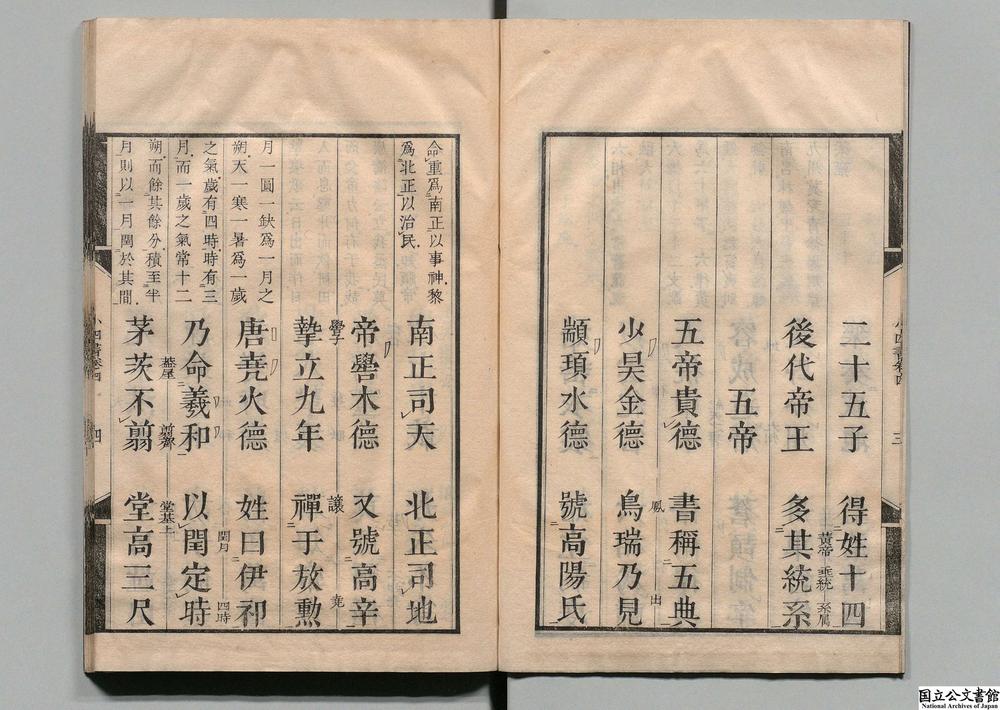 二十五子 得姓十四
黃帝 垂統 系屬
後代帝王 多其統系
五帝
五帝貴德 書稱五典
鳳 出
少昊金德 鳥瑞乃見
顓頊水德 號高陽氏
三
命重爲南正以事神黎
爲北正以治民
南正司天 北正司地
帝嚳木德 又號高辛
譲 堯
摯立九年 禪于放勲
月一圓一缺爲一月之
朔天一寒一暑爲一歲
唐堯火德 姓曰伊祁
閏月 四時
之氣歲有四時時有三
月而一歲之氣常十二
乃命羲和 以閏定時
蓋屋 剪齊 堂基上
朔而餘其餘分積至半
月則以一月閏於其間
茅茨不翦 堂高三尺
小四書卷四
四
国立公文書館
National Archives of Japan